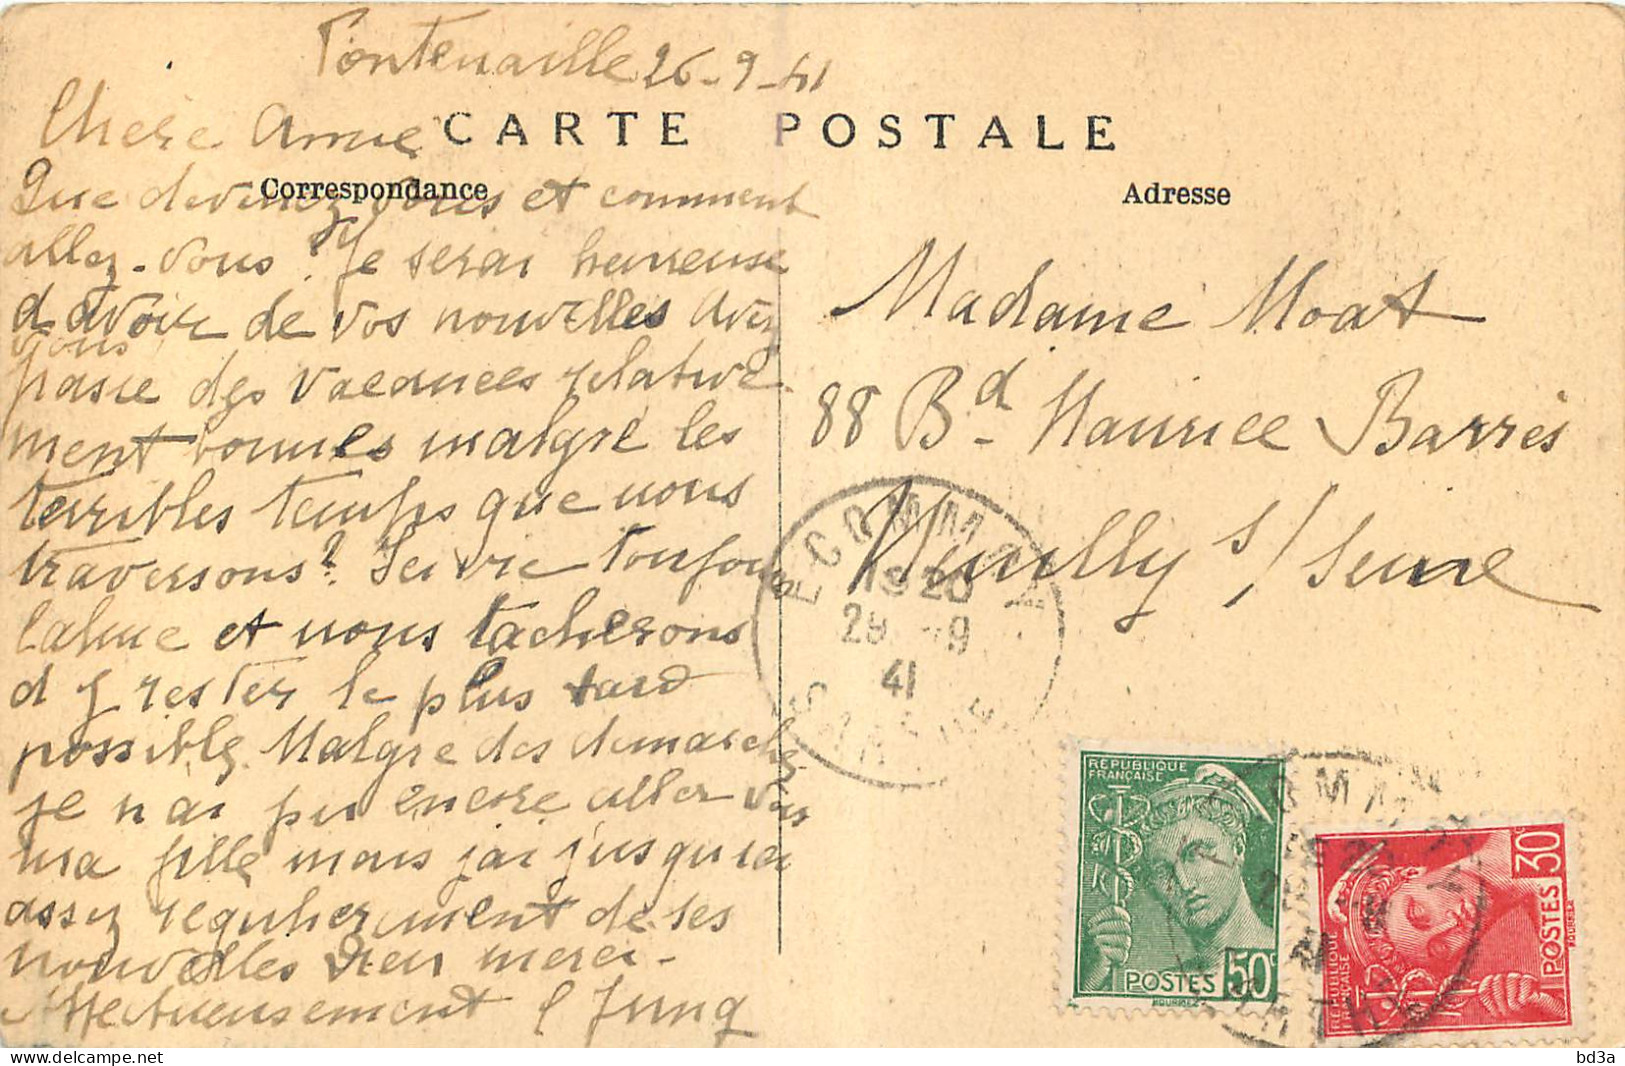 Fontenaille 26-9-41
Chere Amie
CARTE POSTALE
Correspondance
Adresse
Que devenez vous et comment
allez-vous ? Je serai heureuse
d avoir de vos nouvelles Avez
vous
passe des vacances relative
ment bonnes malgre les
terribles temps que nous
traversons? Ici vie toujours
calme et nous tacherons
d y rester le plus tard
possible. Malgre des demarches
je n ai pu encore aller voir
ma fille mais j ai jusqu ici
assez regulierement de ses
nouvelles Dieu merci -
Affectueusement C Jung
Madame Moat
88 Bd Maurice Barrès
Neuilly s/Seine
ECOMMOY
1920
29 -9
41
SARTHE
REPUBLIQUE
FRANÇAISE
POSTES 50c
REPUBLIQUE
FRANÇAISE
POSTES 30c
bd3a